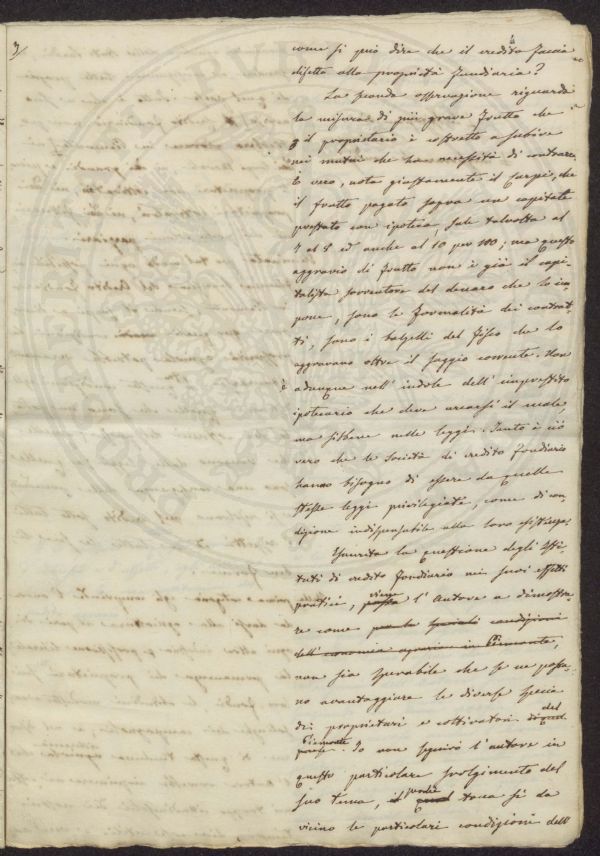 3/
come si può dire che il credito faccia
difetto alla proprietà fondiaria?
La seconda osservazione riguarda
la misura di più grave frutto che
il proprietario è costretto a subire
nei mutui che ha necessità di contrarre.
È vero, nota giustamente il Carpi, che
il frutto pagato sopra un capitale
prestato con ipoteca, sale talvolta al
7 al 8 ed anche al 10 per 100; ma questo
aggravio di frutto non è già il capi-
talista sovventore del denaro che lo im-
pone, sono le formalità dei contrat-
ti, sono i balzelli del fisco che lo
aggravano oltre il saggio corrente. Non
è adunque nell'indole dell'imprestito
ipotecario che deve cercarsi il male,
ma sibbene nelle leggi. Tanto è ciò
vero che le società di credito fondiario
hanno bisogno di essere da quelle
stesse leggi privilegiate, come di con-
dizione indispensabile alla loro esistenza.
Esaurita la questione degli Isti-
tuti di credito fondiario nei suoi effetti
pratici, passa viene l'Autore a dimostra-
re come per le speciali condizioni
dell'economia agraria in Piemonte,
non sia sperabile che se ne possa-
no avvantaggiare le diverse specie
di proprietari e coltivatori del
Piemonte. Io non seguirò l'autore in
questo particolare svolgimento del
suo tema, il quale tocca sì da
vicino le particolari condizioni dell'